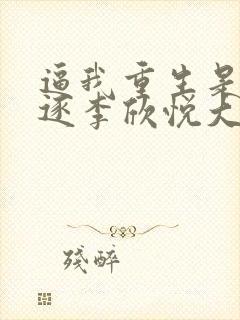 逼我重生是
逐李欣悦大
残醉